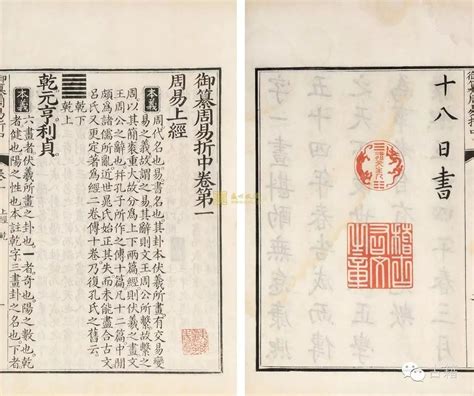 十八日書
稽古右文之章
御纂周易折中卷第一
周易上經
本義 周代名也易書名也其卦本伏羲所畫有交易變
易之義故謂之易其辭則文王周公所繫故繫之
周以其簡袠重大故分為上下兩篇經則伏羲之畫文
王周公之辭也并孔子所作之傳十篇凡十二篇中間
頗為諸儒所亂近世晁氏始正其失而未能盡合古文
呂氏又更定著為經二卷傳十卷乃復孔氏之舊云
乾下
乾上
乾元亨利貞
本義 六畫者伏羲所畫之卦也一者奇也陽之數也乾
者健也陽之性也本註乾字三畫卦之名也下者
御纂周易折中 卷一 上經 乾
古籍